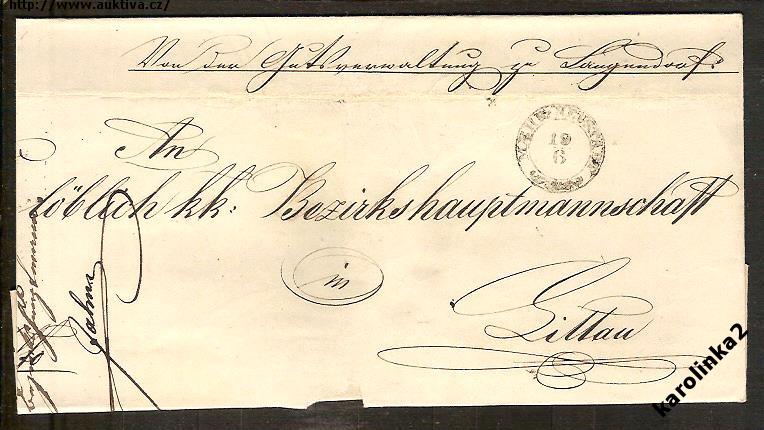 http://www.auktiva.cz/
Von der Gutsverwaltung zu Langendorf.
19
6
An
löblich kk: Bezirkshauptmannschaft
in
Littau
karolinka2